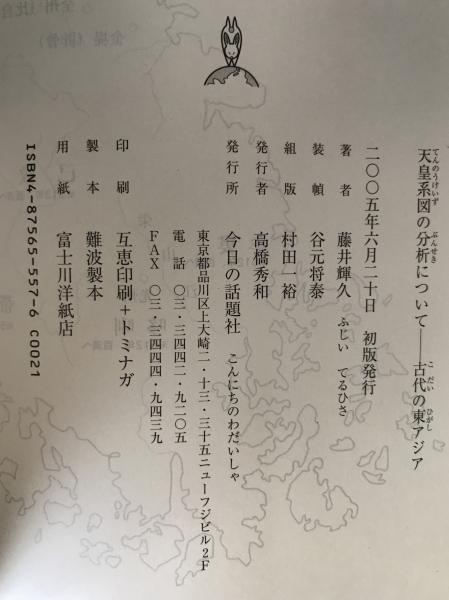 天皇系図の分析について――古代の東アジア
てんのうけいず ぶんせき こだい ひがし
二〇〇五年六月二十日 初版発行
著者 藤井輝久 ふじい てるひさ
装幀 谷元将泰
組版 村田一裕
発行者 高橋秀和
発行所 今日の話題社 こんにちのわだいしゃ
東京都品川区上大崎二・十三・三十五ニューフジビル2F
電話 〇三・三四四二・九二〇五
FAX 〇三・三四四四・九四三九
印刷 互恵印刷+トミナガ
製本 難波製本
用紙 富士川洋紙店
ISBN4-87565-557-6 C0021